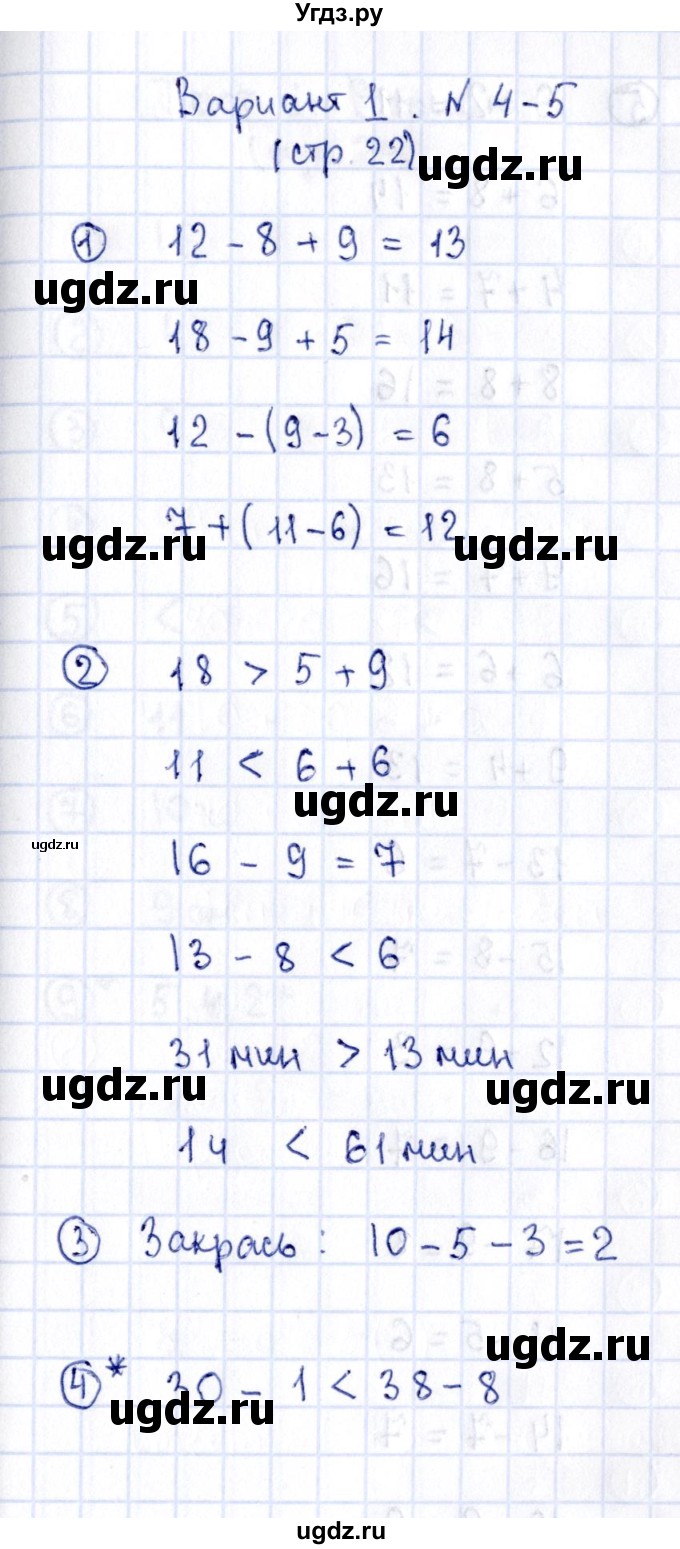 Угдз.ру
Вариант 1. N 4-5
(стр. 22)
ugdz.ru
① 12 - 8 + 9 = 13
ugdz.ru
18 - 9 + 5 = 14
12 - (9 - 3) = 6
7 + (11 - 6) = 12
ugdz.ru ugdz.ru
② 18 > 5 + 9
11 < 6 + 6
ugdz.ru
ugdz.ru
16 - 9 = 7
13 - 8 < 6
31 мин > 13 мин
ugdz.ru ugdz.ru
14 < 61 мин
③ Закрась: 10 - 5 - 3 = 2
ugdz.ru
④* 30 - 1 < 38 - 8
ugdz.ru
ugdz.ru